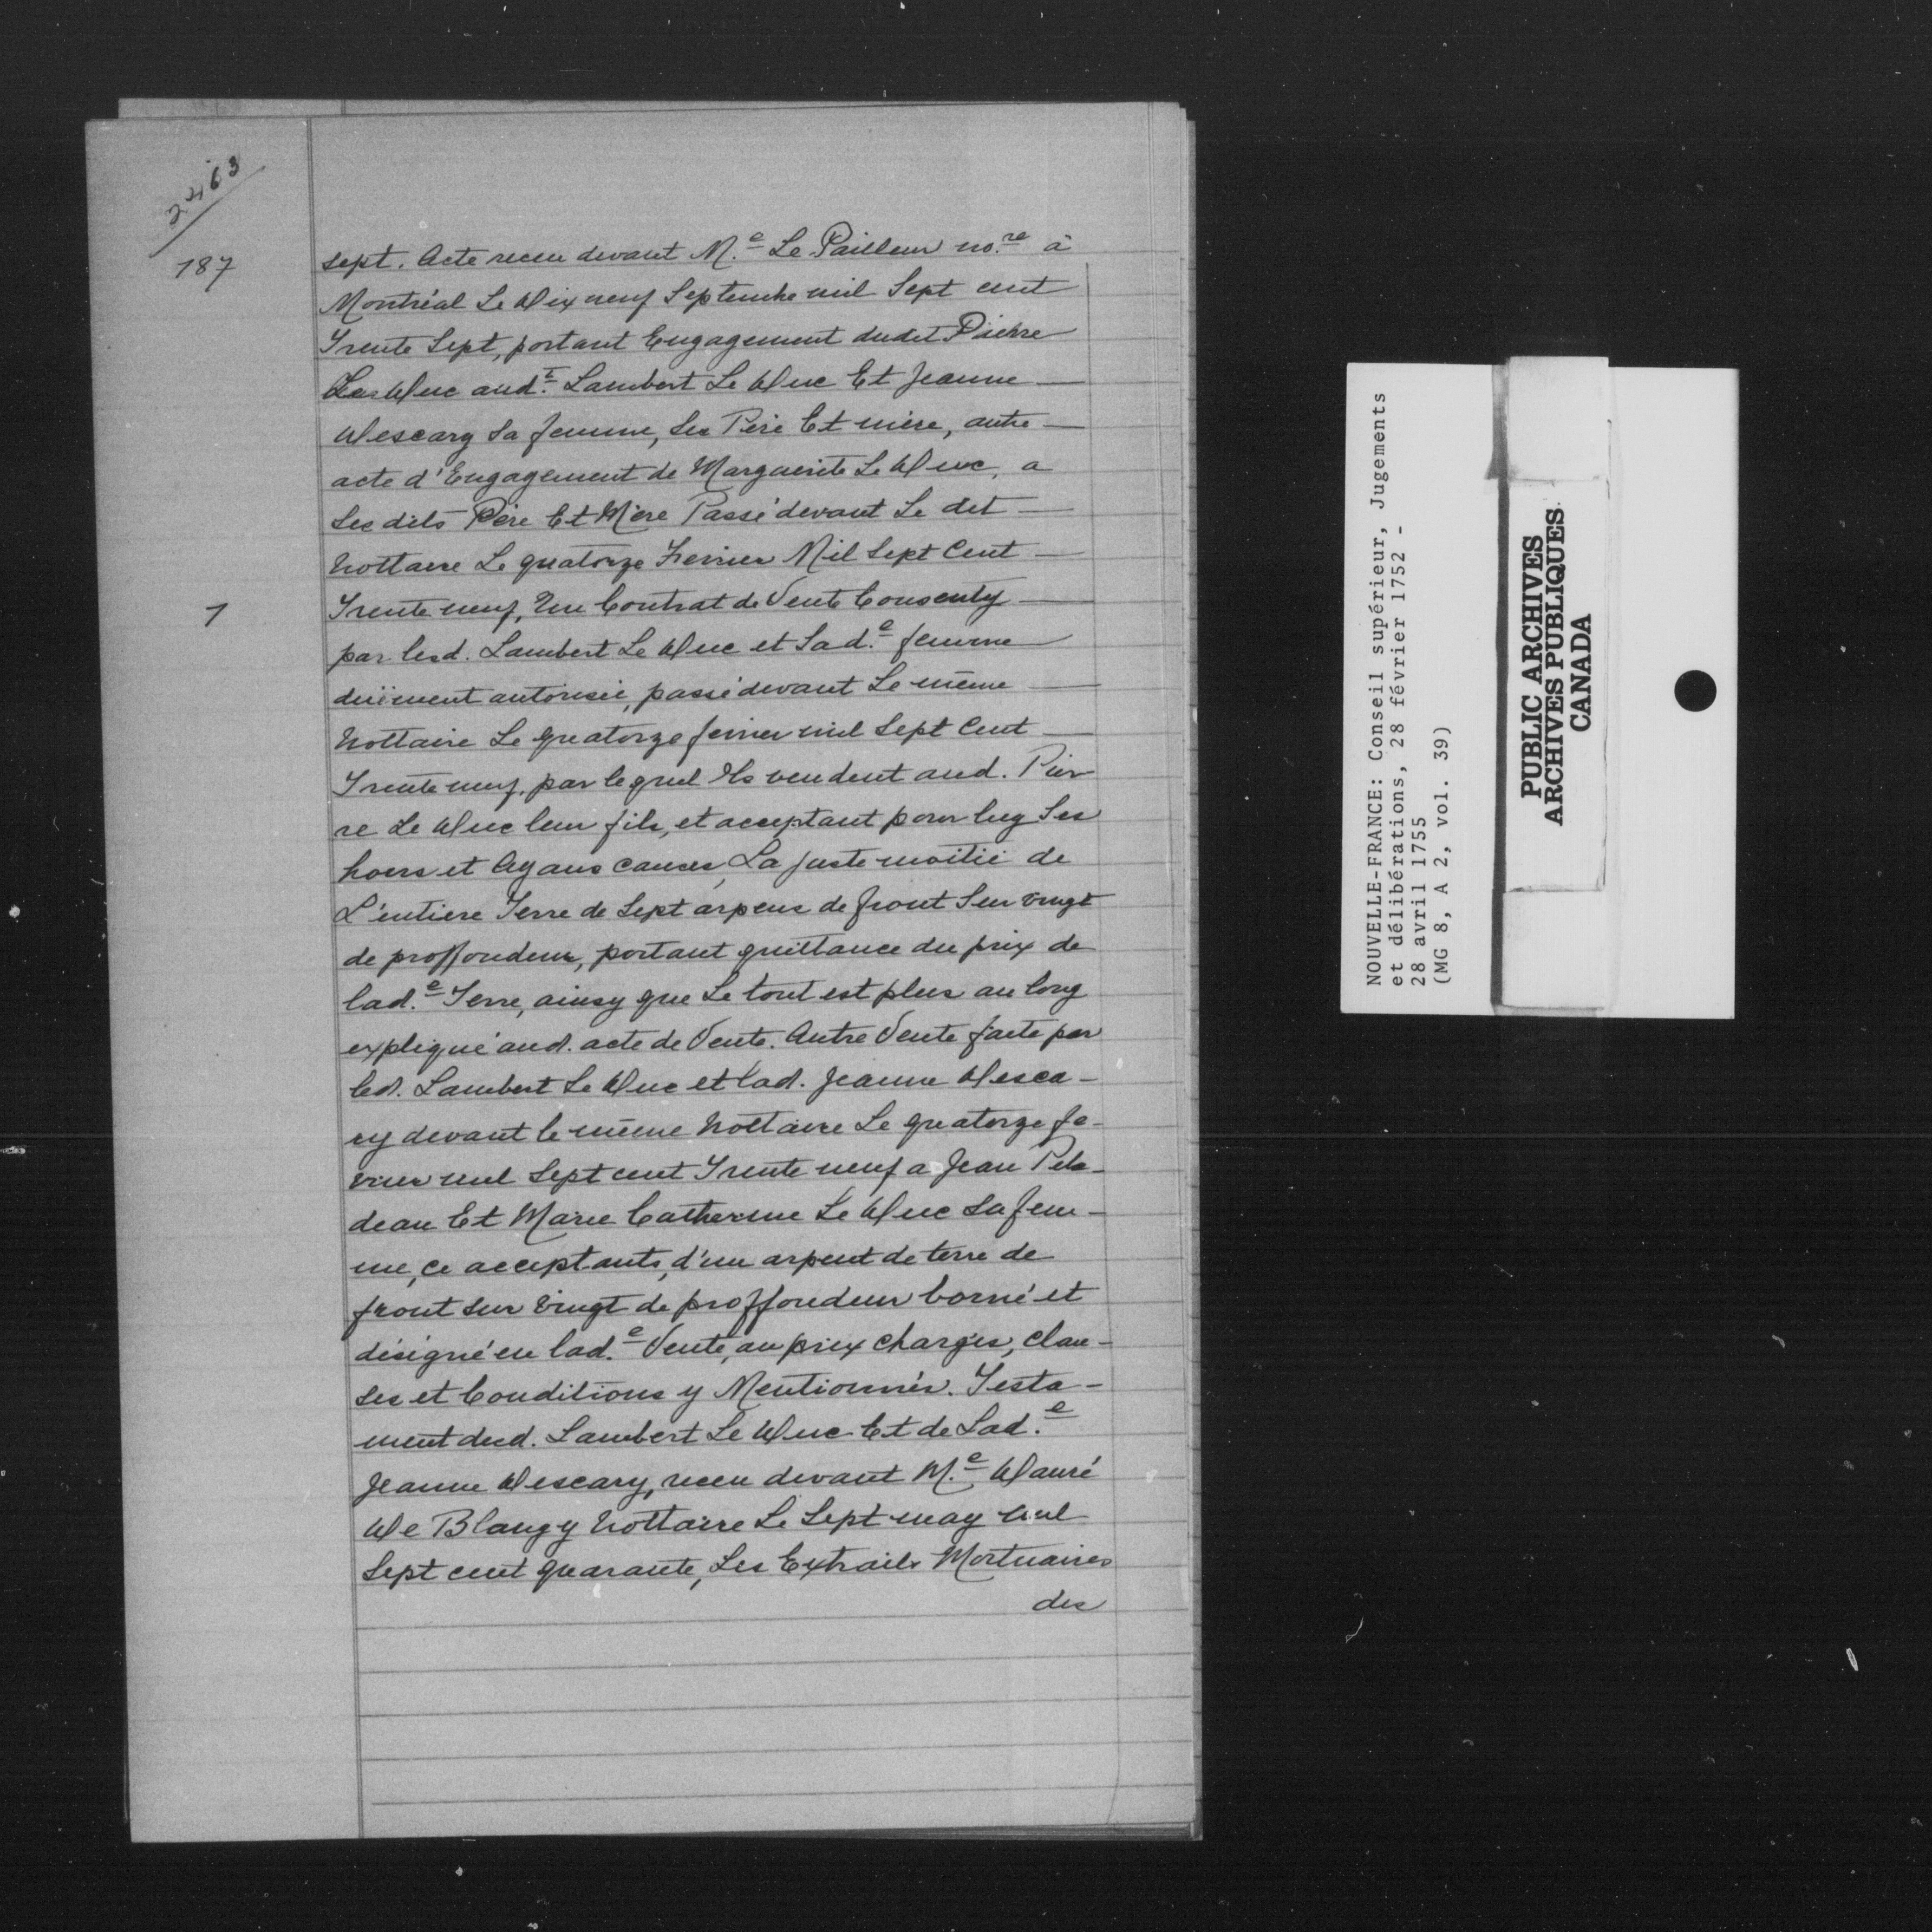 2463
187
sept. Acte receu devant M.e Le Pailleur no.re à
Montréal Le Dix neuf Septembre mil Sept cent
Trente Sept, portant Engagement dudit Pierre
Le Duc aud.t Lambert Le Duc Et Jeanne
Descary Sa femme, Ses Père Et mère, autre
acte d'Engagement de Marguerite Le Duc, a
Ses dits Père Et Mère Passé devant Le dit
Nottaire Le quatorze Fevrier Mil Sept Cent
1
Trente neuf, Un Contrat de Vente Consenty
par lesd. Lambert Le Duc et Sad.e femme
duëment autorisée, passé devant Le même
Nottaire Le quatorze fevrier mil Sept Cent
Trente neuf, par lequel Ils vendent aud. Pier
re Le Duc leur fils, et acceptant pour luy Ses
hoers et Ayans causes, La juste moitié de
L'entiere Terre de Sept arpens de front Sur vingt
de proffondeur, portant quittance du prix de
lad.e Terre, ainsy que Le tout est plus au long
expliqué aud. acte de Vente. Autre Vente faite par
led. Lambert Le Duc et lad. Jeanne Desca-
ry devant le même Nottaire Le quatorze fe-
vrier mil Sept cent Trente neuf a Jean Pela-
deau Et Marie Catherine Le Duc Sa fem-
me, ce acceptants, d'un arpent de terre de
front sur vingt de proffondeur borné et
désigné en lad.e Vente, au prix charges, clau-
ses et Conditions y Mentionnés. Testa-
ment dud. Lambert Le Duc Et de Lad.e
Jeanne Descary, receu devant M.e Dauré
De Blangy Nottaire Le Sept may mil
Sept cent quarante, Les Extraits Mortuaires
des
NOUVELLE-FRANCE: Conseil supérieur, Jugements
et délibérations, 28 février 1752 -
28 avril 1755
(MG 8, A 2, vol. 39)
PUBLIC ARCHIVES
ARCHIVES PUBLIQUES
CANADA